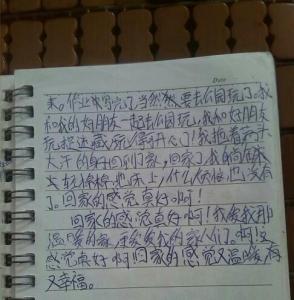 Date
来。作业本写完了,当然我要去公园玩了。我
和我的好朋友一起去公园玩,我和好朋友
玩捉迷藏玩得开心了!我拖着满头
大汗的身回到了家,回家了我躺在我
软绵绵地床上,什么烦恼也没有
了。回家的感觉真好啊!
回家的感觉真好啊!我爱我那
温暖的家,我的家人们。啊!这
感觉真好啊回家的感觉又温暖有
又幸福。